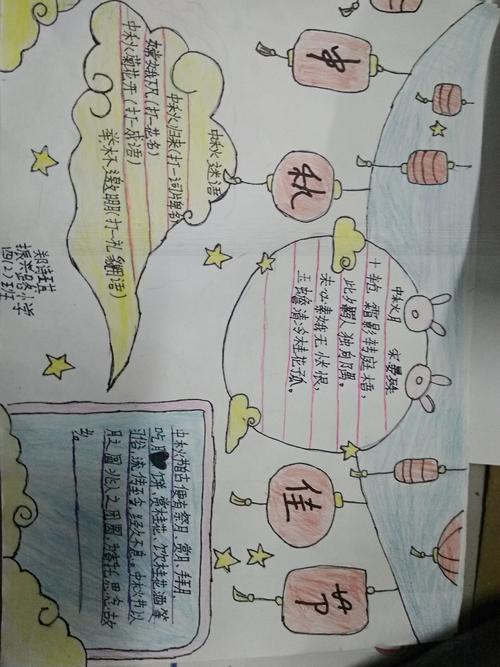 中
秋
佳
节
中秋谜语
中秋归来(打一词牌名)
嫦娥下凡(打一花名)
中秋菊花开(打一成语)
举杯邀明(打一礼貌语)
小学
四(2)班
中秋月 宋晏殊
十轮霜影转庭梧,
此夕羁人独向隅。
未必素娥无怅恨,
玉蟾清冷桂花孤。
中秋节自古便有祭月、赏月、拜月、
吃月饼、赏桂花、饮桂花酒等
习俗,流传至今,经久不息。中秋节以
月之圆兆人之团圆,为寄托思念故
乡。